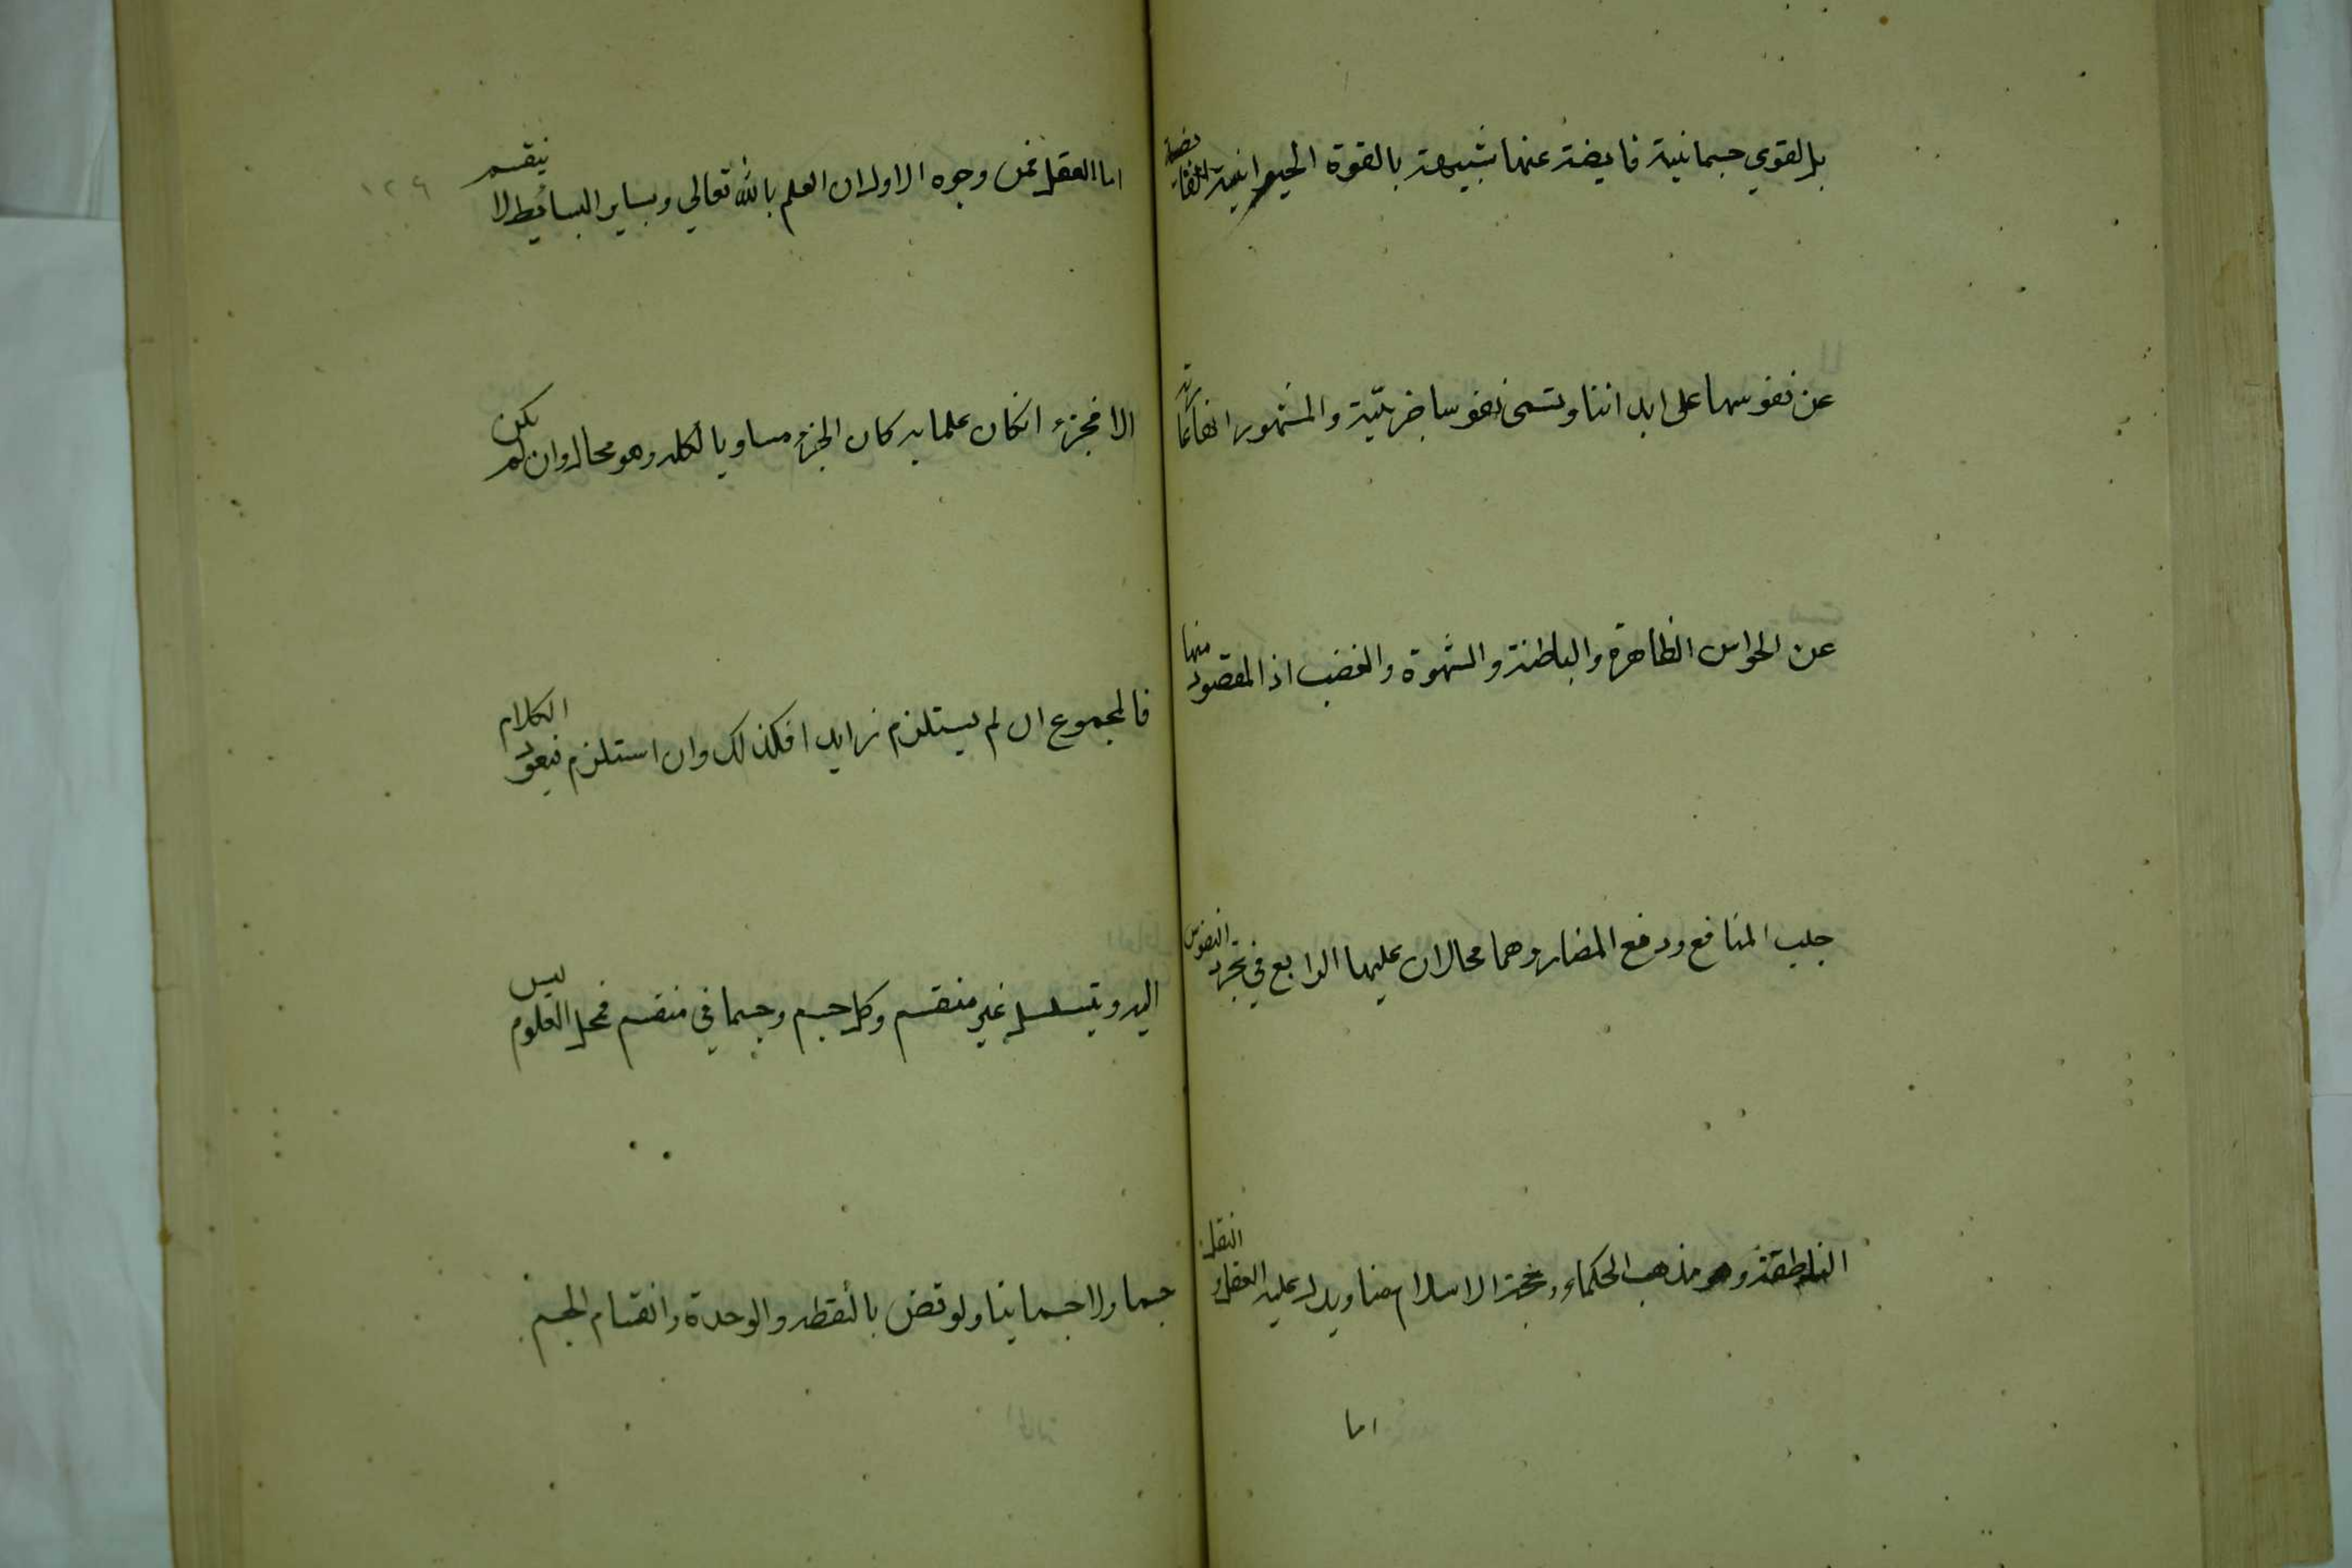 بل لقوي جسمانية فايضة عنها شبيهة بالقوة الحيوانية الفايضة
عن نفوسها على ابداننا وتسمى نفوسا جزئيّة والمشهور انها عارية
عن الحواس الظاهرة والباطنة والشهوة والغضب اذ المقصود منها
جلب المنافع ودفع المضار وهما محالان عليها الرابع في تجرد النفوس
الناطقة وهو مذهب الحكماء وحجة الاسلام منا ويدل عليه العقل والنقل
اما
١٢٦
اما العقل فمن وجوه الاول ان العلم بالله تعالي وبساير البسائيط لا ينقسم
الا فجزء انكان علما به كان الجزء مساويا لكله وهو محال وان لم يكن
فالمجموع ان لم يستلزم زايدا فكذلك وان استلزم فيعود الكلام
اليه ويتسلسل غير منقسم وكل جسم وجسماني منقسم فمحل العلوم ليس
جسما ولا جسمانيا ولو نقض بالنقطه والوحدة وانقسام الجسم